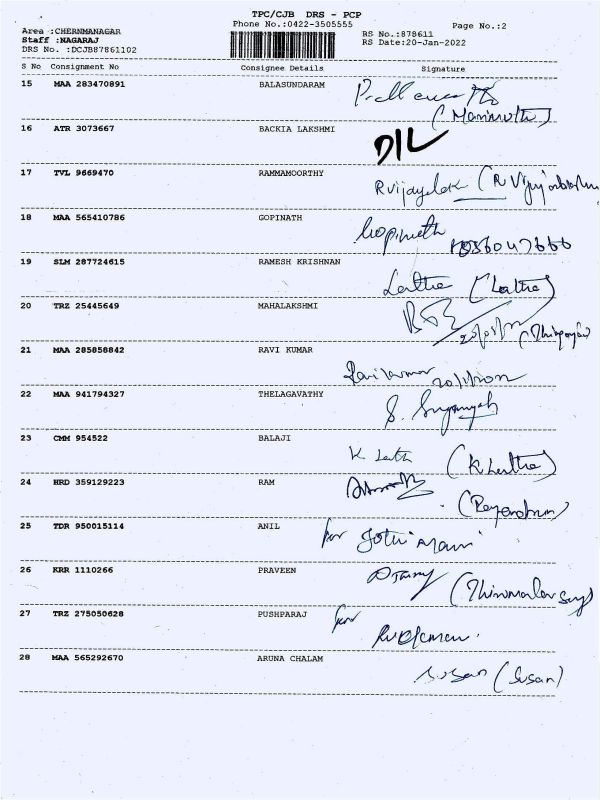 TPC/CJB DRS - PCP
Phone No.:0422-3505555
Page No.:2
Area :CHERNMANAGAR
Staff :NAGARAJ
DRS No. :DCJB87861102
RS No.:878611
RS Date:20-Jan-2022
S No Consignment No Consignee Details Signature
15 MAA 283470891 BALASUNDARAM
16 ATR 3073667 BACKIA LAKSHMI D/L
17 TVL 9669470 RAMMAMOORTHY
18 MAA 565410786 GOPINATH Gopinath
19 SLM 287724615 RAMESH KRISHNAN Lathe (Lathe)
20 TRZ 25445649 MAHALAKSHMI
21 MAA 285858842 RAVI KUMAR Ravikumar
22 MAA 941794327 THELAGAVATHY
23 CMM 954522 BALAJI
24 HRD 359129223 RAM
25 TDR 950015114 ANIL for
26 KRR 1110266 PRAVEEN
27 TRZ 275050628 PUSHPARAJ for
28 MAA 565292670 ARUNA CHALAM Susan (Susan)